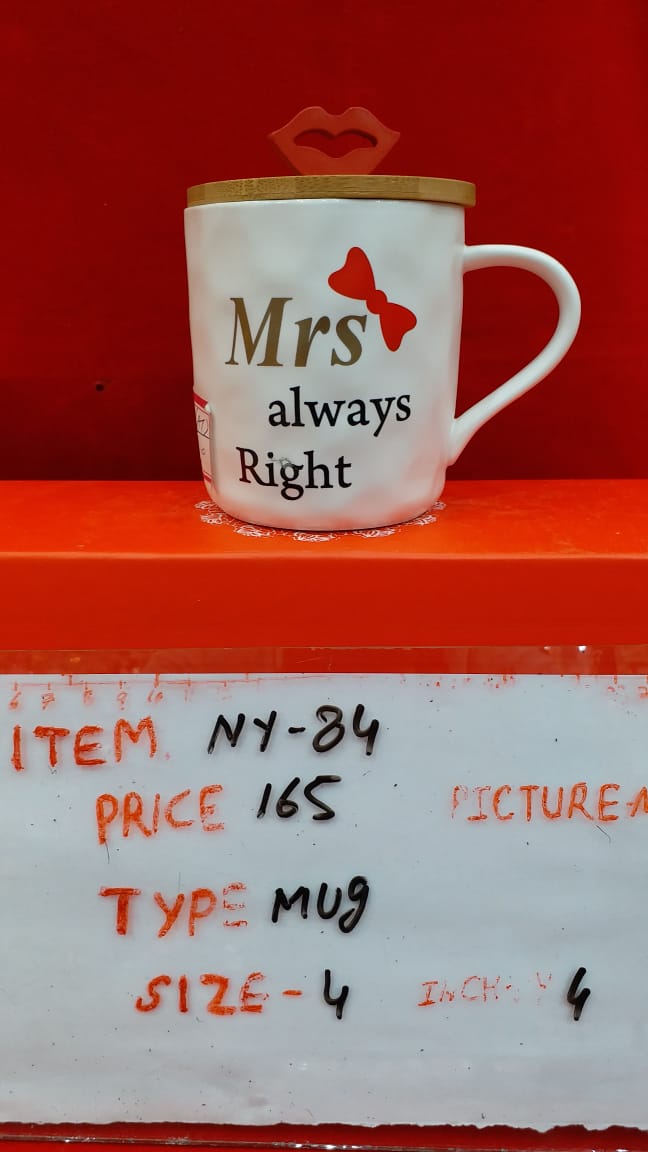 Mrs
always
Right
ITEM NY-84
PRICE 165 PICTURE
TYPE MUg
SIZE - 4 INCH 4